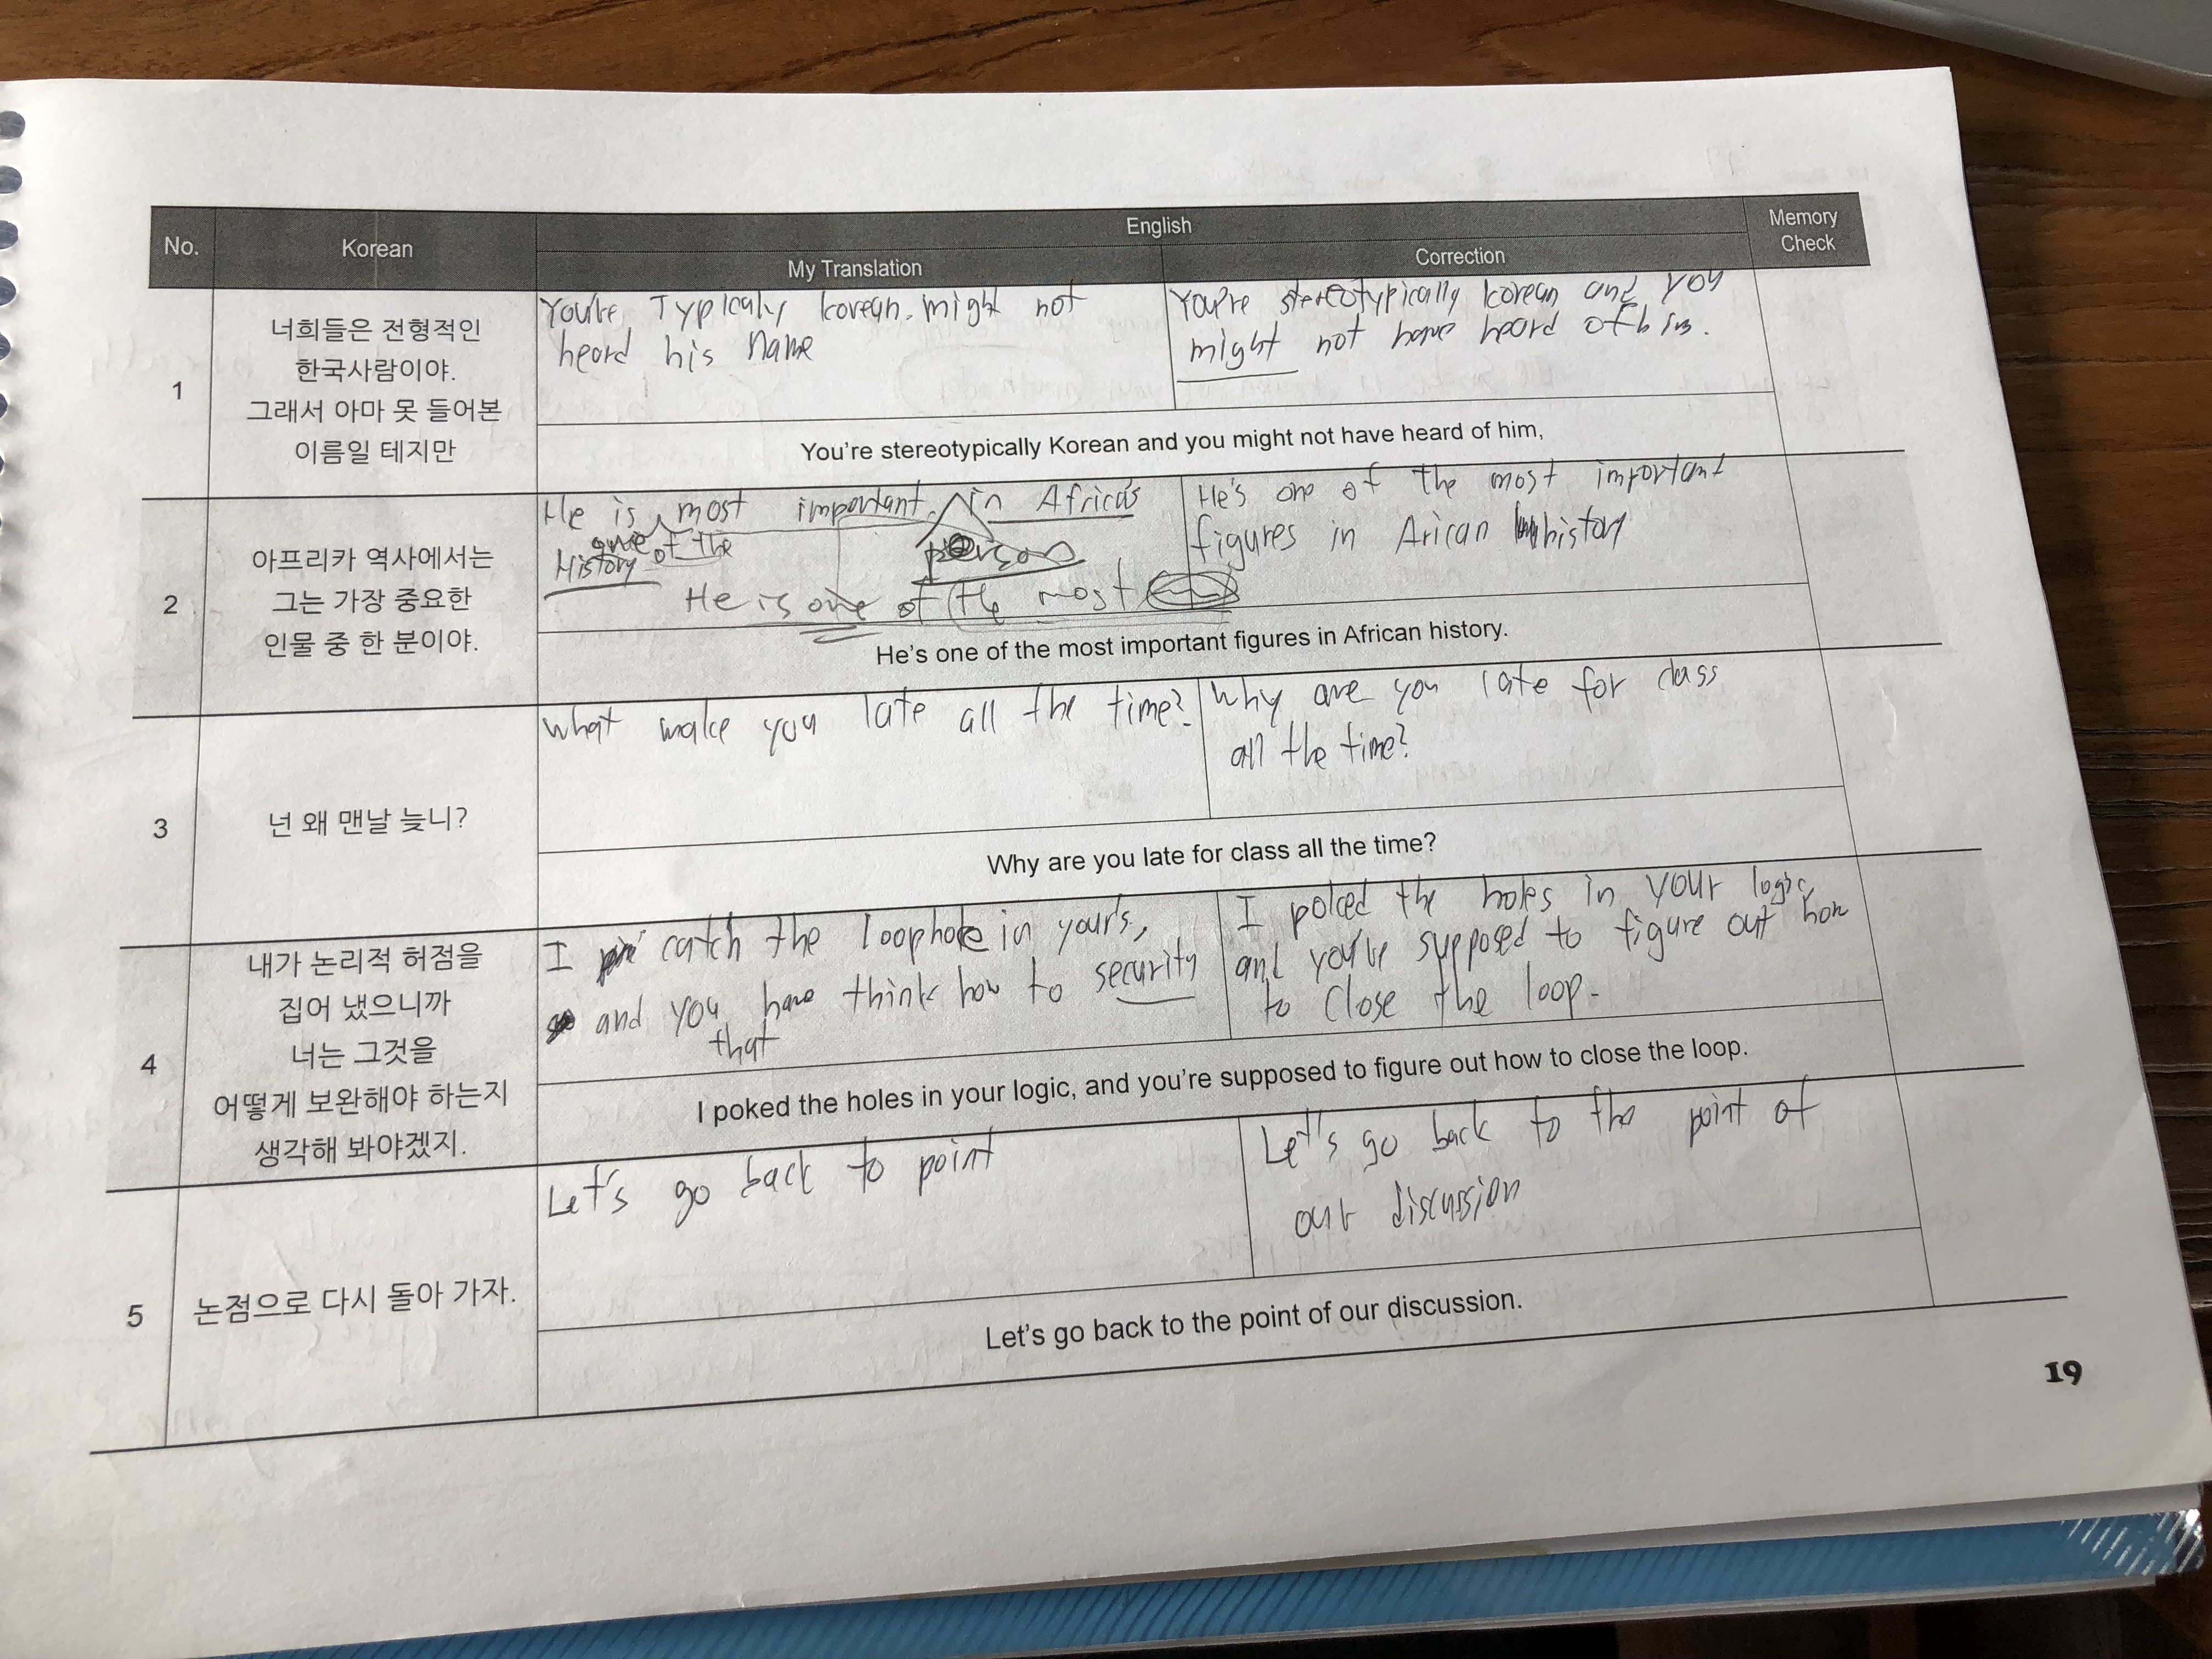 No.
Korean
English
My Translation
Correction
Memory
Check
1
너희들은 전형적인
한국사람이야.
그래서 아마 못 들어본
이름일 테지만
You're Typicaly korean. might not
heard his name
You're stereotypically korean and you
might not have heard of him.
You're stereotypically Korean and you might not have heard of him,
2
아프리카 역사에서는
그는 가장 중요한
인물 중 한 분이야.
He is most important in Africa's
one of the
History
person
He is one of the most
He's one of the most important
figures in Arican history
He's one of the most important figures in African history.
3
넌 왜 맨날 늦니?
What make you late all the time?
Why are you late for class
all the time?
Why are you late for class all the time?
4
내가 논리적 허점을
집어 냈으니까
너는 그것을
어떻게 보완해야 하는지
생각해 봐야겠지.
I catch the loophole in your's,
and you have think how to security
that
I poked the holes in your logic,
and you're supposed to figure out how
to close the loop.
I poked the holes in your logic, and you're supposed to figure out how to close the loop.
5
논점으로 다시 돌아 가자.
Let's go back to point
Let's go back to the point of
our discussion
Let's go back to the point of our discussion.
19